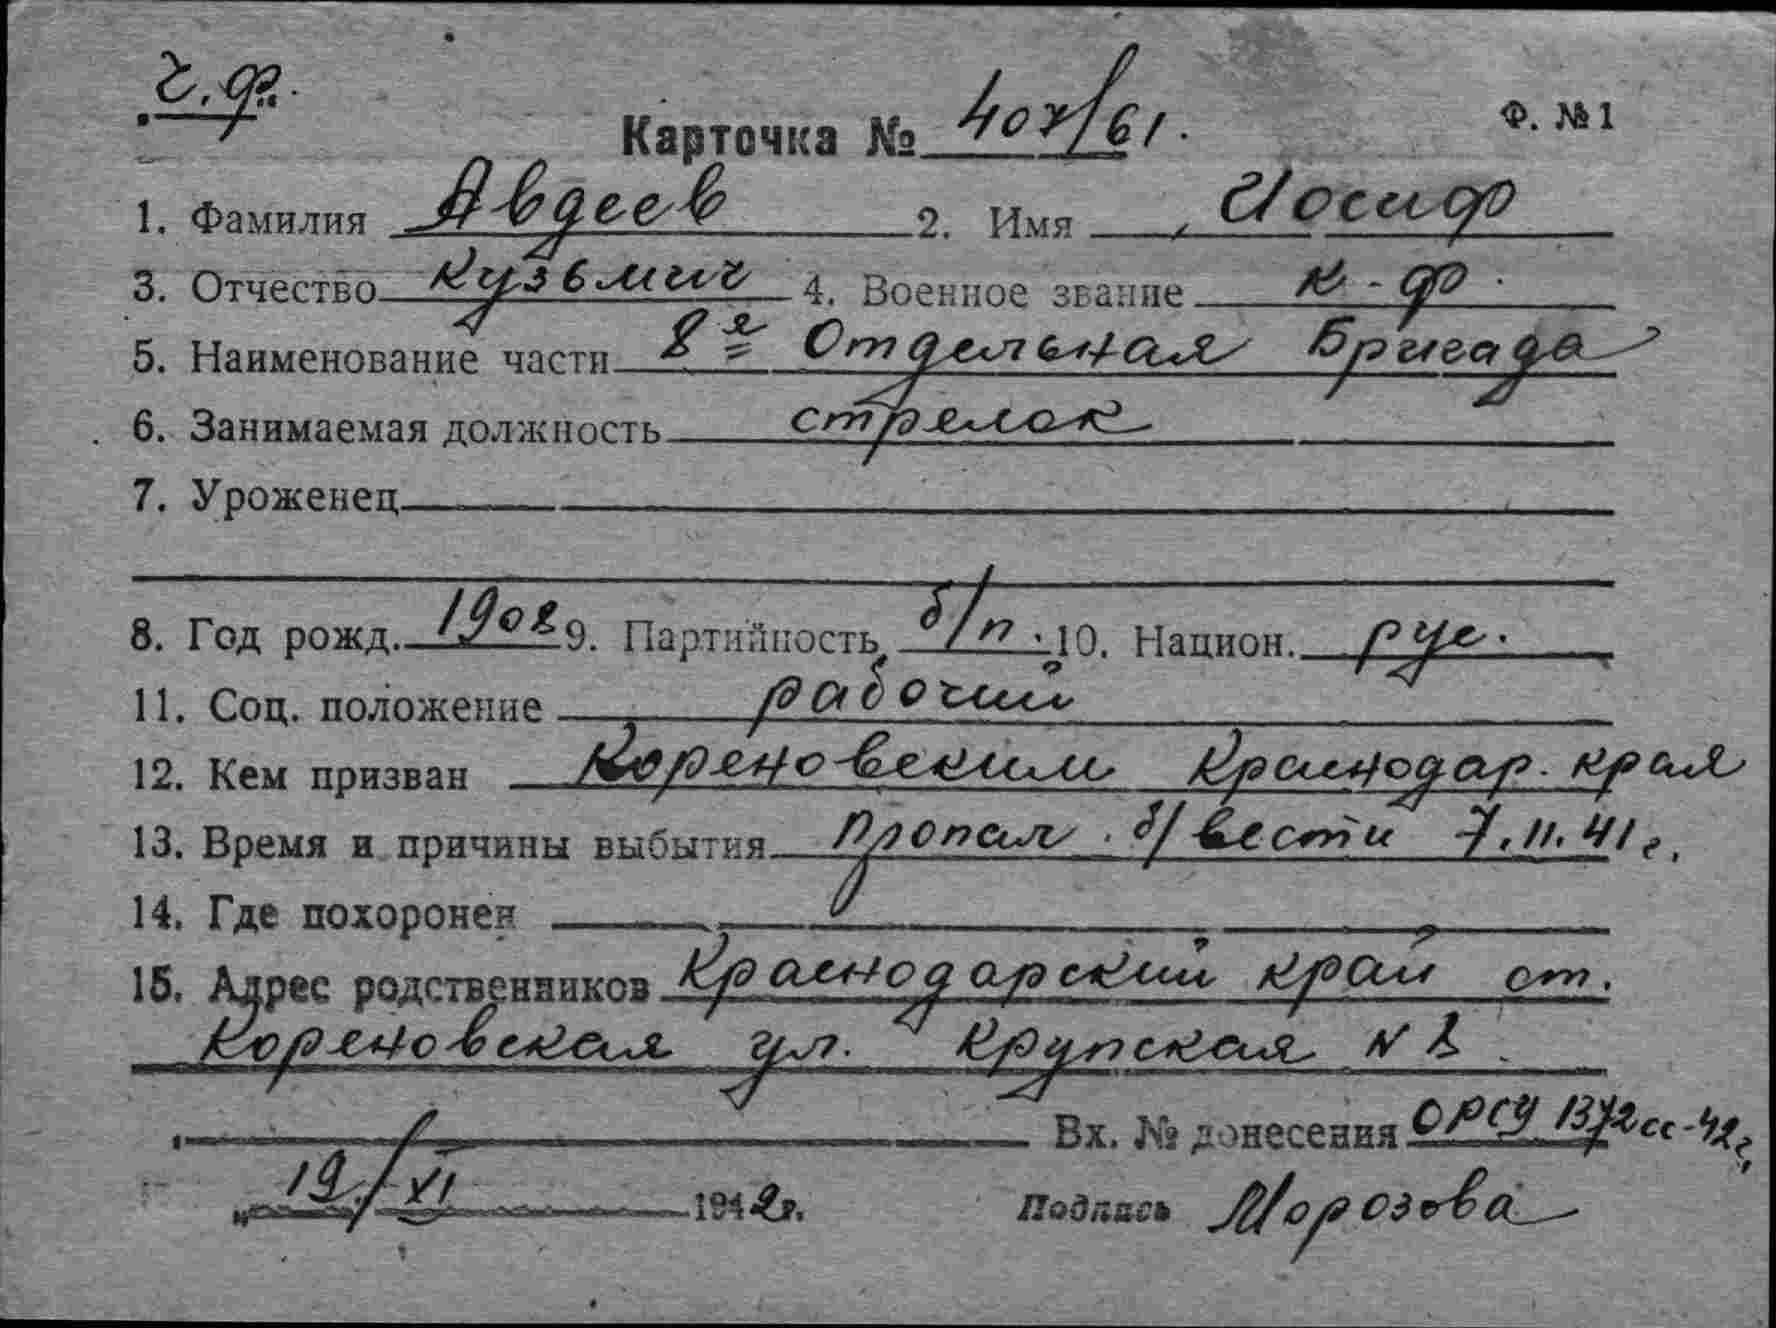 Ч.Ф.
Карточка № 407/61.
Ф. №1
1. Фамилия Авдеев 2. Имя Иосиф
3. Отчество Кузьмич 4. Военное звание к-ф.
5. Наименование части 8я Отдельная Бригада
6. Занимаемая должность стрелок
7. Уроженец
8. Год рожд. 1908 9. Партийность б/п. 10. Национ. рус.
11. Соц. положение рабочий
12. Кем призван Кореновским Краснодар. края
13. Время и причины выбытия Пропал б/вести 7.11.41г.
14. Где похоронен
15. Адрес родственников Краснодарский край ст.
Кореновская ул. Крупская N
Вх. № донесения ОРСУ 1372сс-42г.
"19/XI 1942г. Подпись Морозова